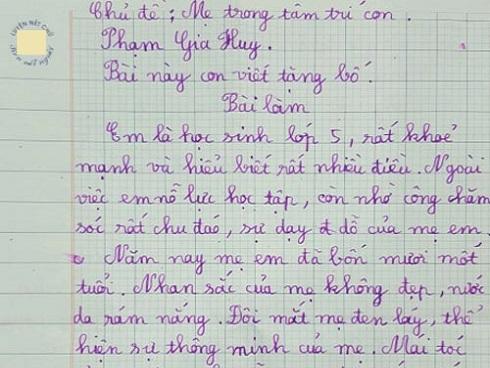 Chủ đề; Mẹ trong tâm trí con.
Phạm Gia Huy.
Bài này con viết tặng bố.
Bài làm
Em là học sinh lớp 5, rất khoẻ
mạnh và hiểu biết rất nhiều điều. Ngoài
việc em nỗ lực học tập, còn nhờ công chăm
sóc rất chu đáo, sự dạy dỗ của mẹ em.
Năm nay mẹ em đã bốn mươi một
tuổi. Nhan sắc của mẹ không đẹp, nước
da rám nắng. Đôi mắt mẹ đen láy, thể
hiện sự thông minh của mẹ. Mái tóc